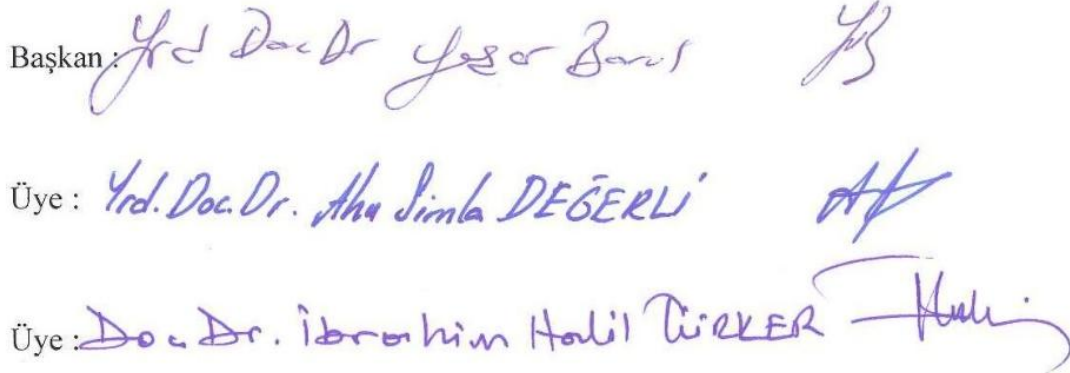 Başkan: Yrd Doc Dr Yaşar Barut
Üye : Yrd. Doc. Dr. Ahu Simla DEĞERLİ
Üye : Doc. Dr. İbrahim Halil TÜRKER